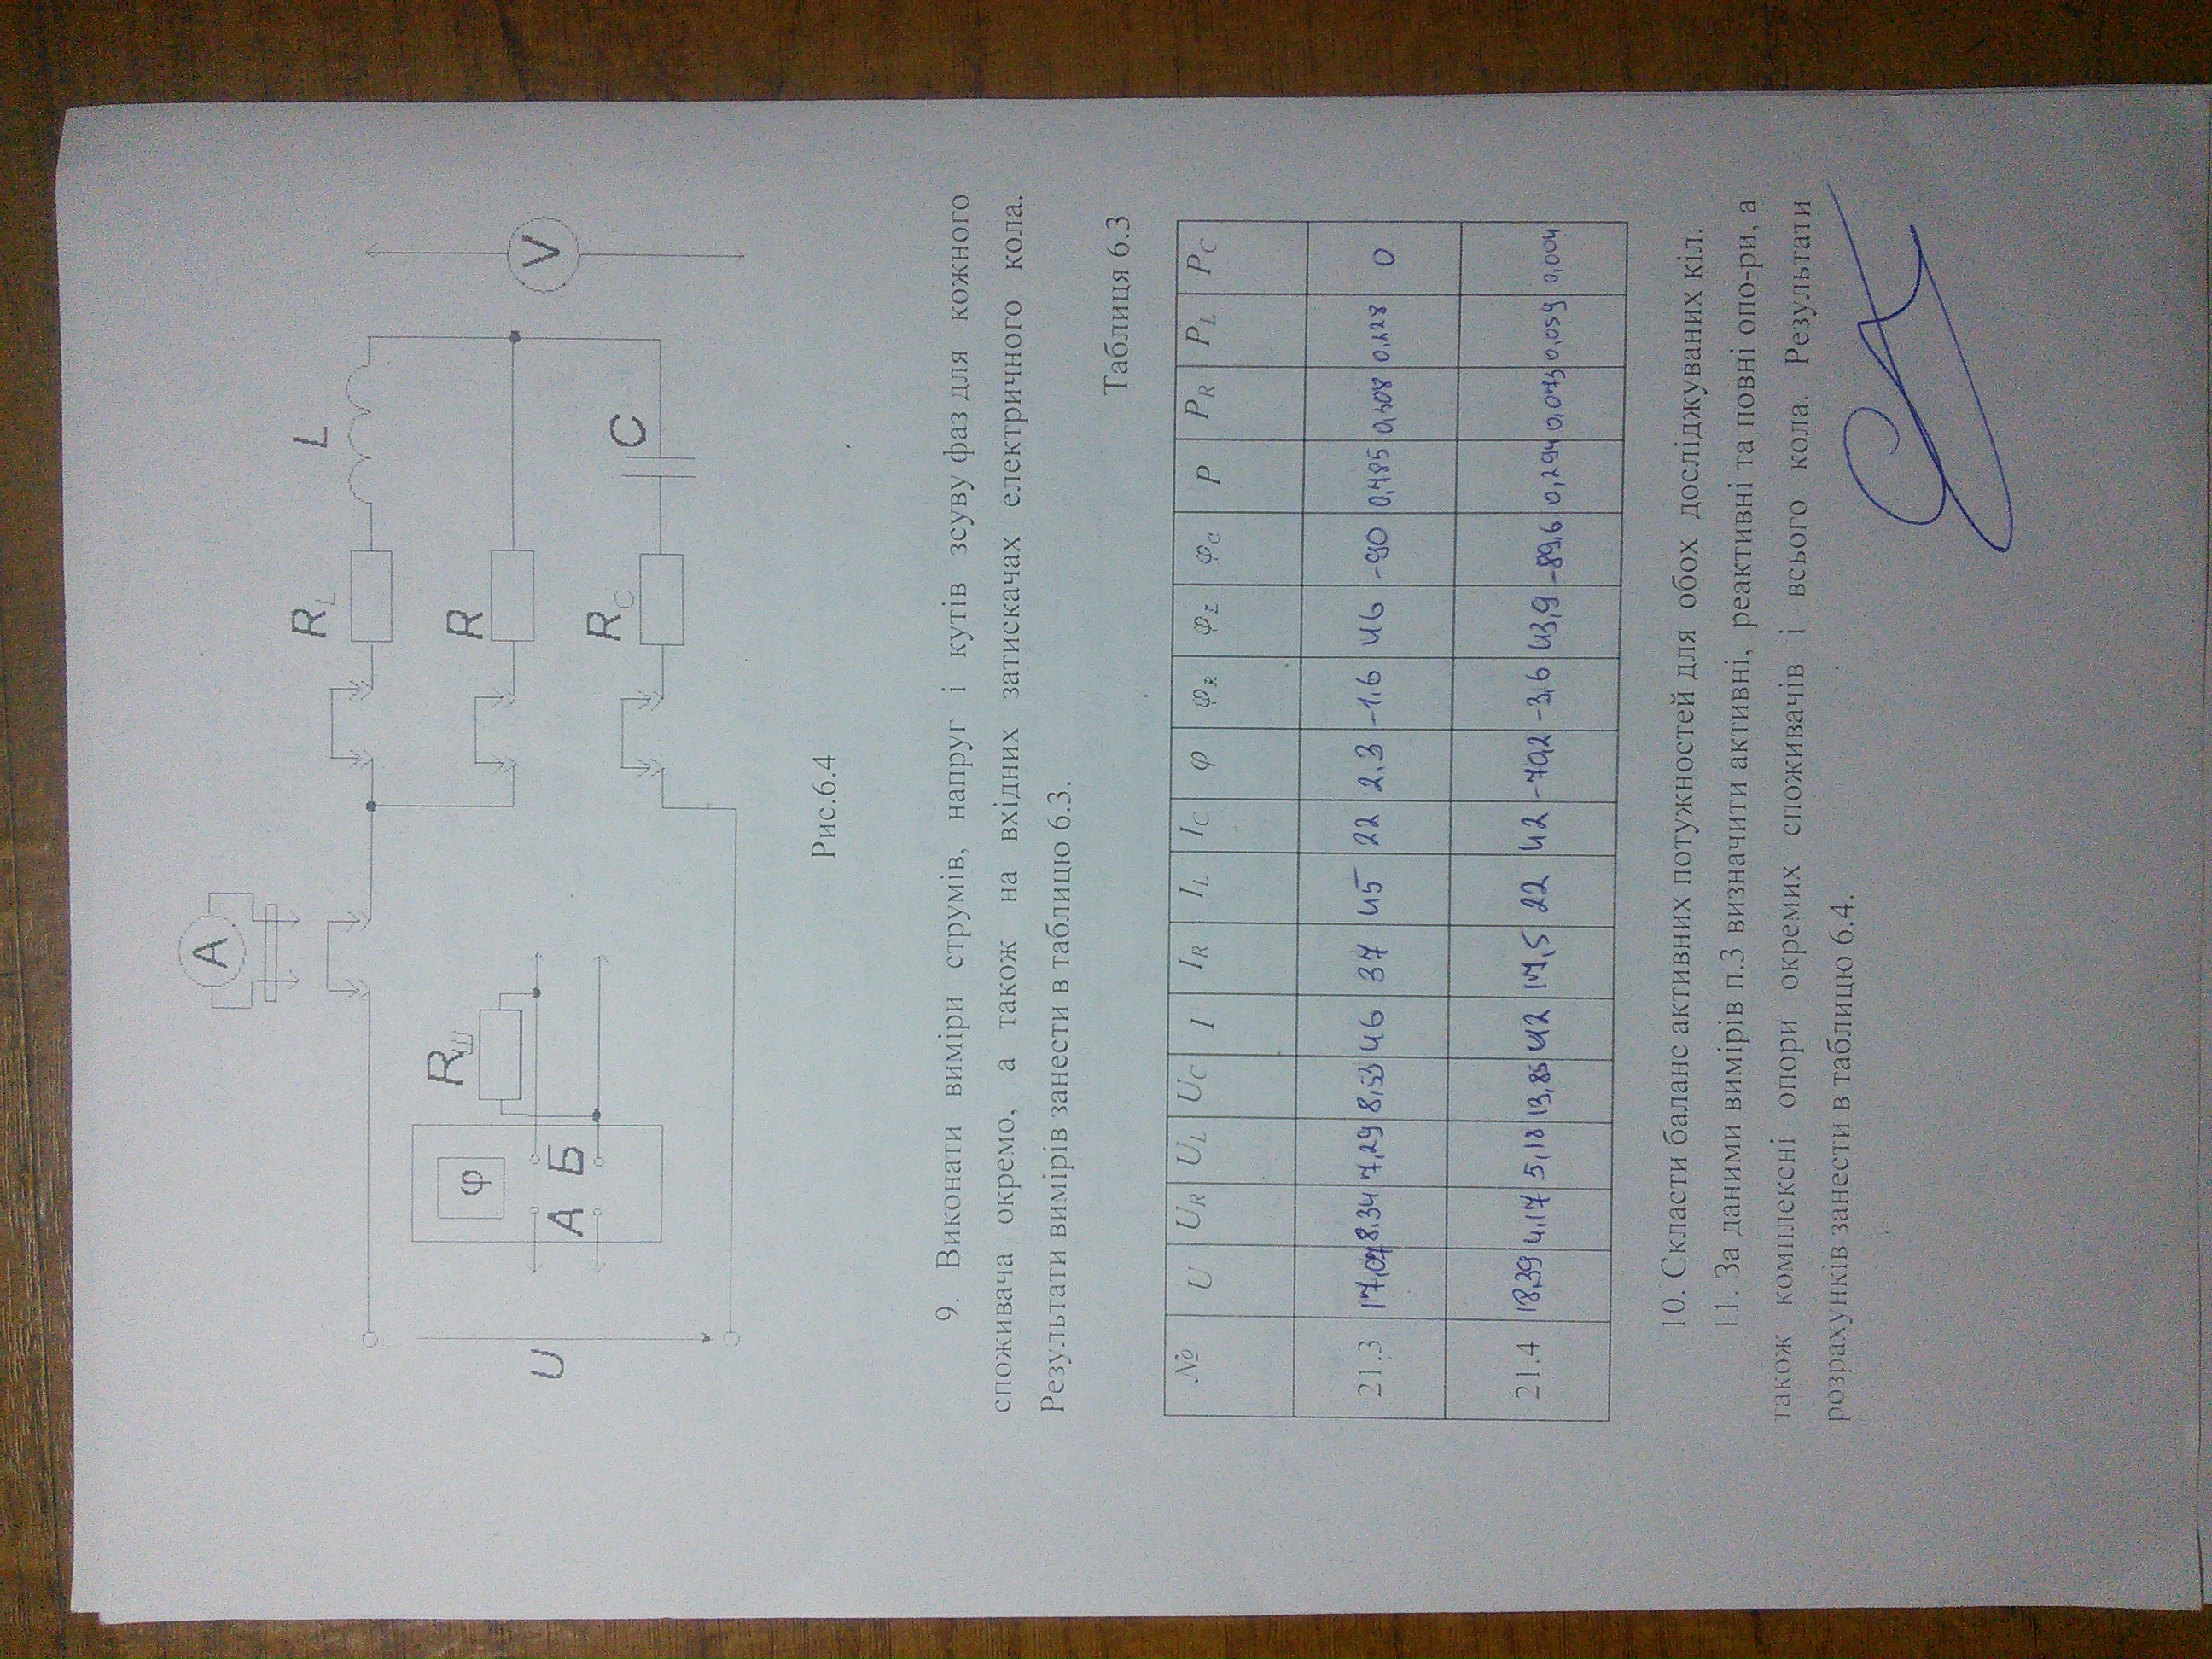 A
R_L L
R_Ш
φ
R
V
А Б
U
R_C C
Рис.6.4
9. Виконати виміри струмів, напруг і кутів зсуву фаз для кожного
споживача окремо, а також на вхідних затискачах електричного кола.
Результати вимірів занести в таблицю 6.3.
Таблиця 6.3
№ U U_R U_L U_C I I_R I_L I_C φ φ_R φ_L φ_C P P_R P_L P_C
21.3 17,07 8.34 7,29 8,53 46 37 45 22 2.3 -1.6 46 -90 0,485 0,308 0,228 0
21.4 18,39 4,17 5,18 13,85 42 17,5 22 42 -70,2 -3,6 43,9 -89,6 0,294 0,073 0,059 0,004
10. Скласти баланс активних потужностей для обох досліджуваних кіл.
11. За даними вимірів п.3 визначити активні, реактивні та повні опо-ри, а
також комплексні опори окремих споживачів і всього кола. Результати
розрахунків занести в таблицю 6.4.